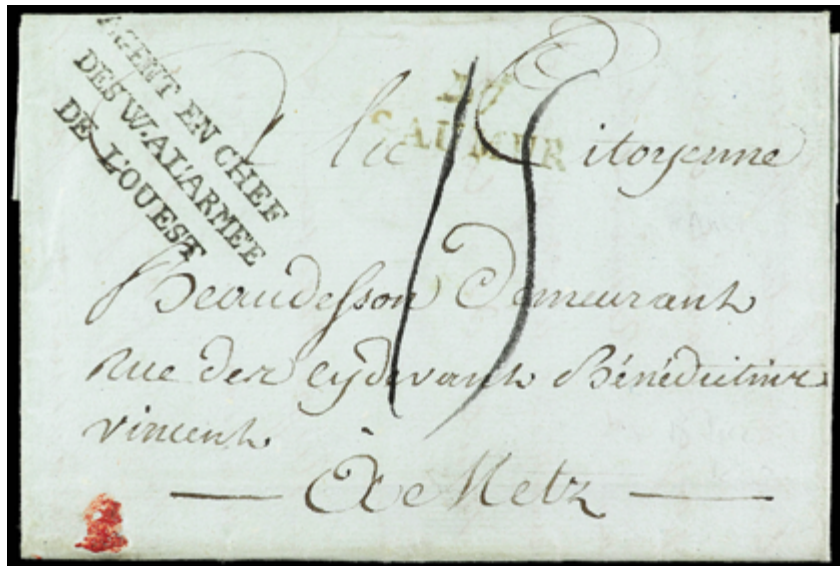 AGENT EN CHEF
DES W. A L'ARMÉE
DE L'OUEST
47
SAUMUR
15
A la Citoyenne
Beaudesson Demeurant
rue des cydevant Bénédictins
vincent
À Metz